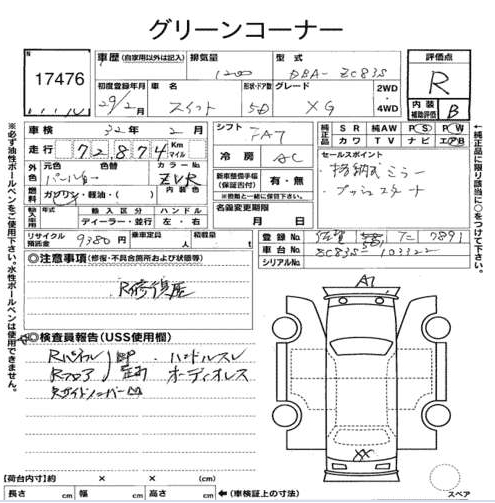 グリーンコーナー
17476
車歴 (自家用以外は記入) 排気量 型式 評価点
1200 DBA- ZC83S R
初度登録年月 車名 形状・ドア数 グレード 2WD 内装補助評価
29/2 スイフト 5D XG 4WD B
車検 32年 2月 シフト FA7 純正品 SR 純AW PS PW
カワ TV ナビ エアB
走行 72,874 Km マイル 冷房 AC セールスポイント
外色 元色 色替 カラーNo. 新車整備手帳(保証書付) 有・無 格納式ミラー
パール ZVR ※直接と一緒に保管して下さい。 プッシュスタート
燃料 ガソリン・軽油・( ) 名義変更期限
輸入車 年式 輸入区分 ハンドル 月 日
ディーラー・並行 左・右
リサイクル預託金 9380円 乗車定員 人 積載量
登録No. 佐賀 581 た 7891
車台No. ZC83S- 103122
シリアルNo.
◎注意事項 (修復・不具合箇所および状態等)
R修復歴
A1
◎検査員報告 (USS使用欄)
Rパネル ハンドルスレ
Rフロア オーディオレス
XX
【荷台内寸】約 × ×
長さ cm 幅 cm 高さ cm ←(車検証上の寸法) スペア
※必ず油性ボールペンをご使用下さい。水性ボールペンは使用できません。
※純正品に限り該当に○をつけて下さい。